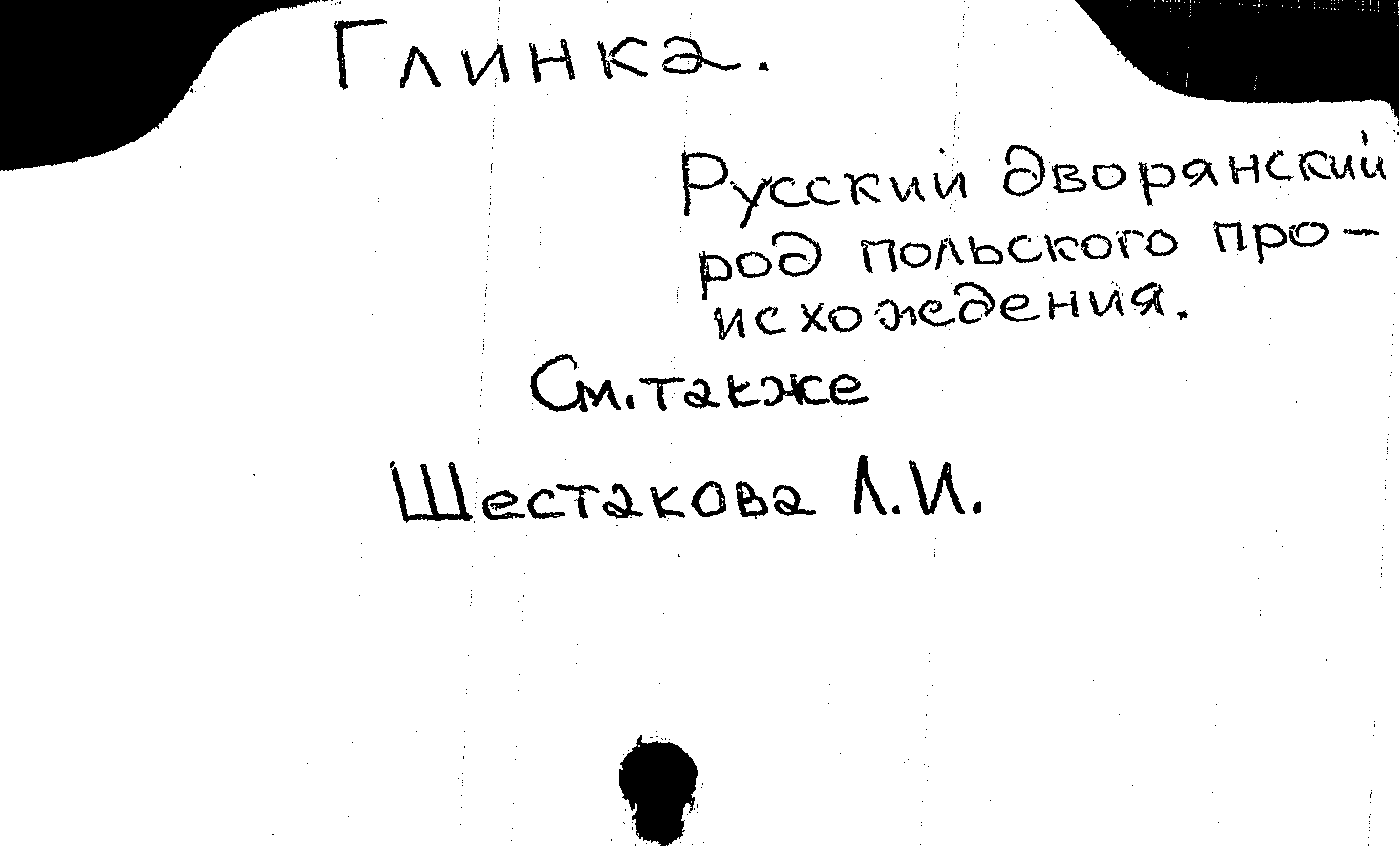 Глинка.
Русский дворянский
род польского про-
исхождения.
См. также
Шестакова Л.И.